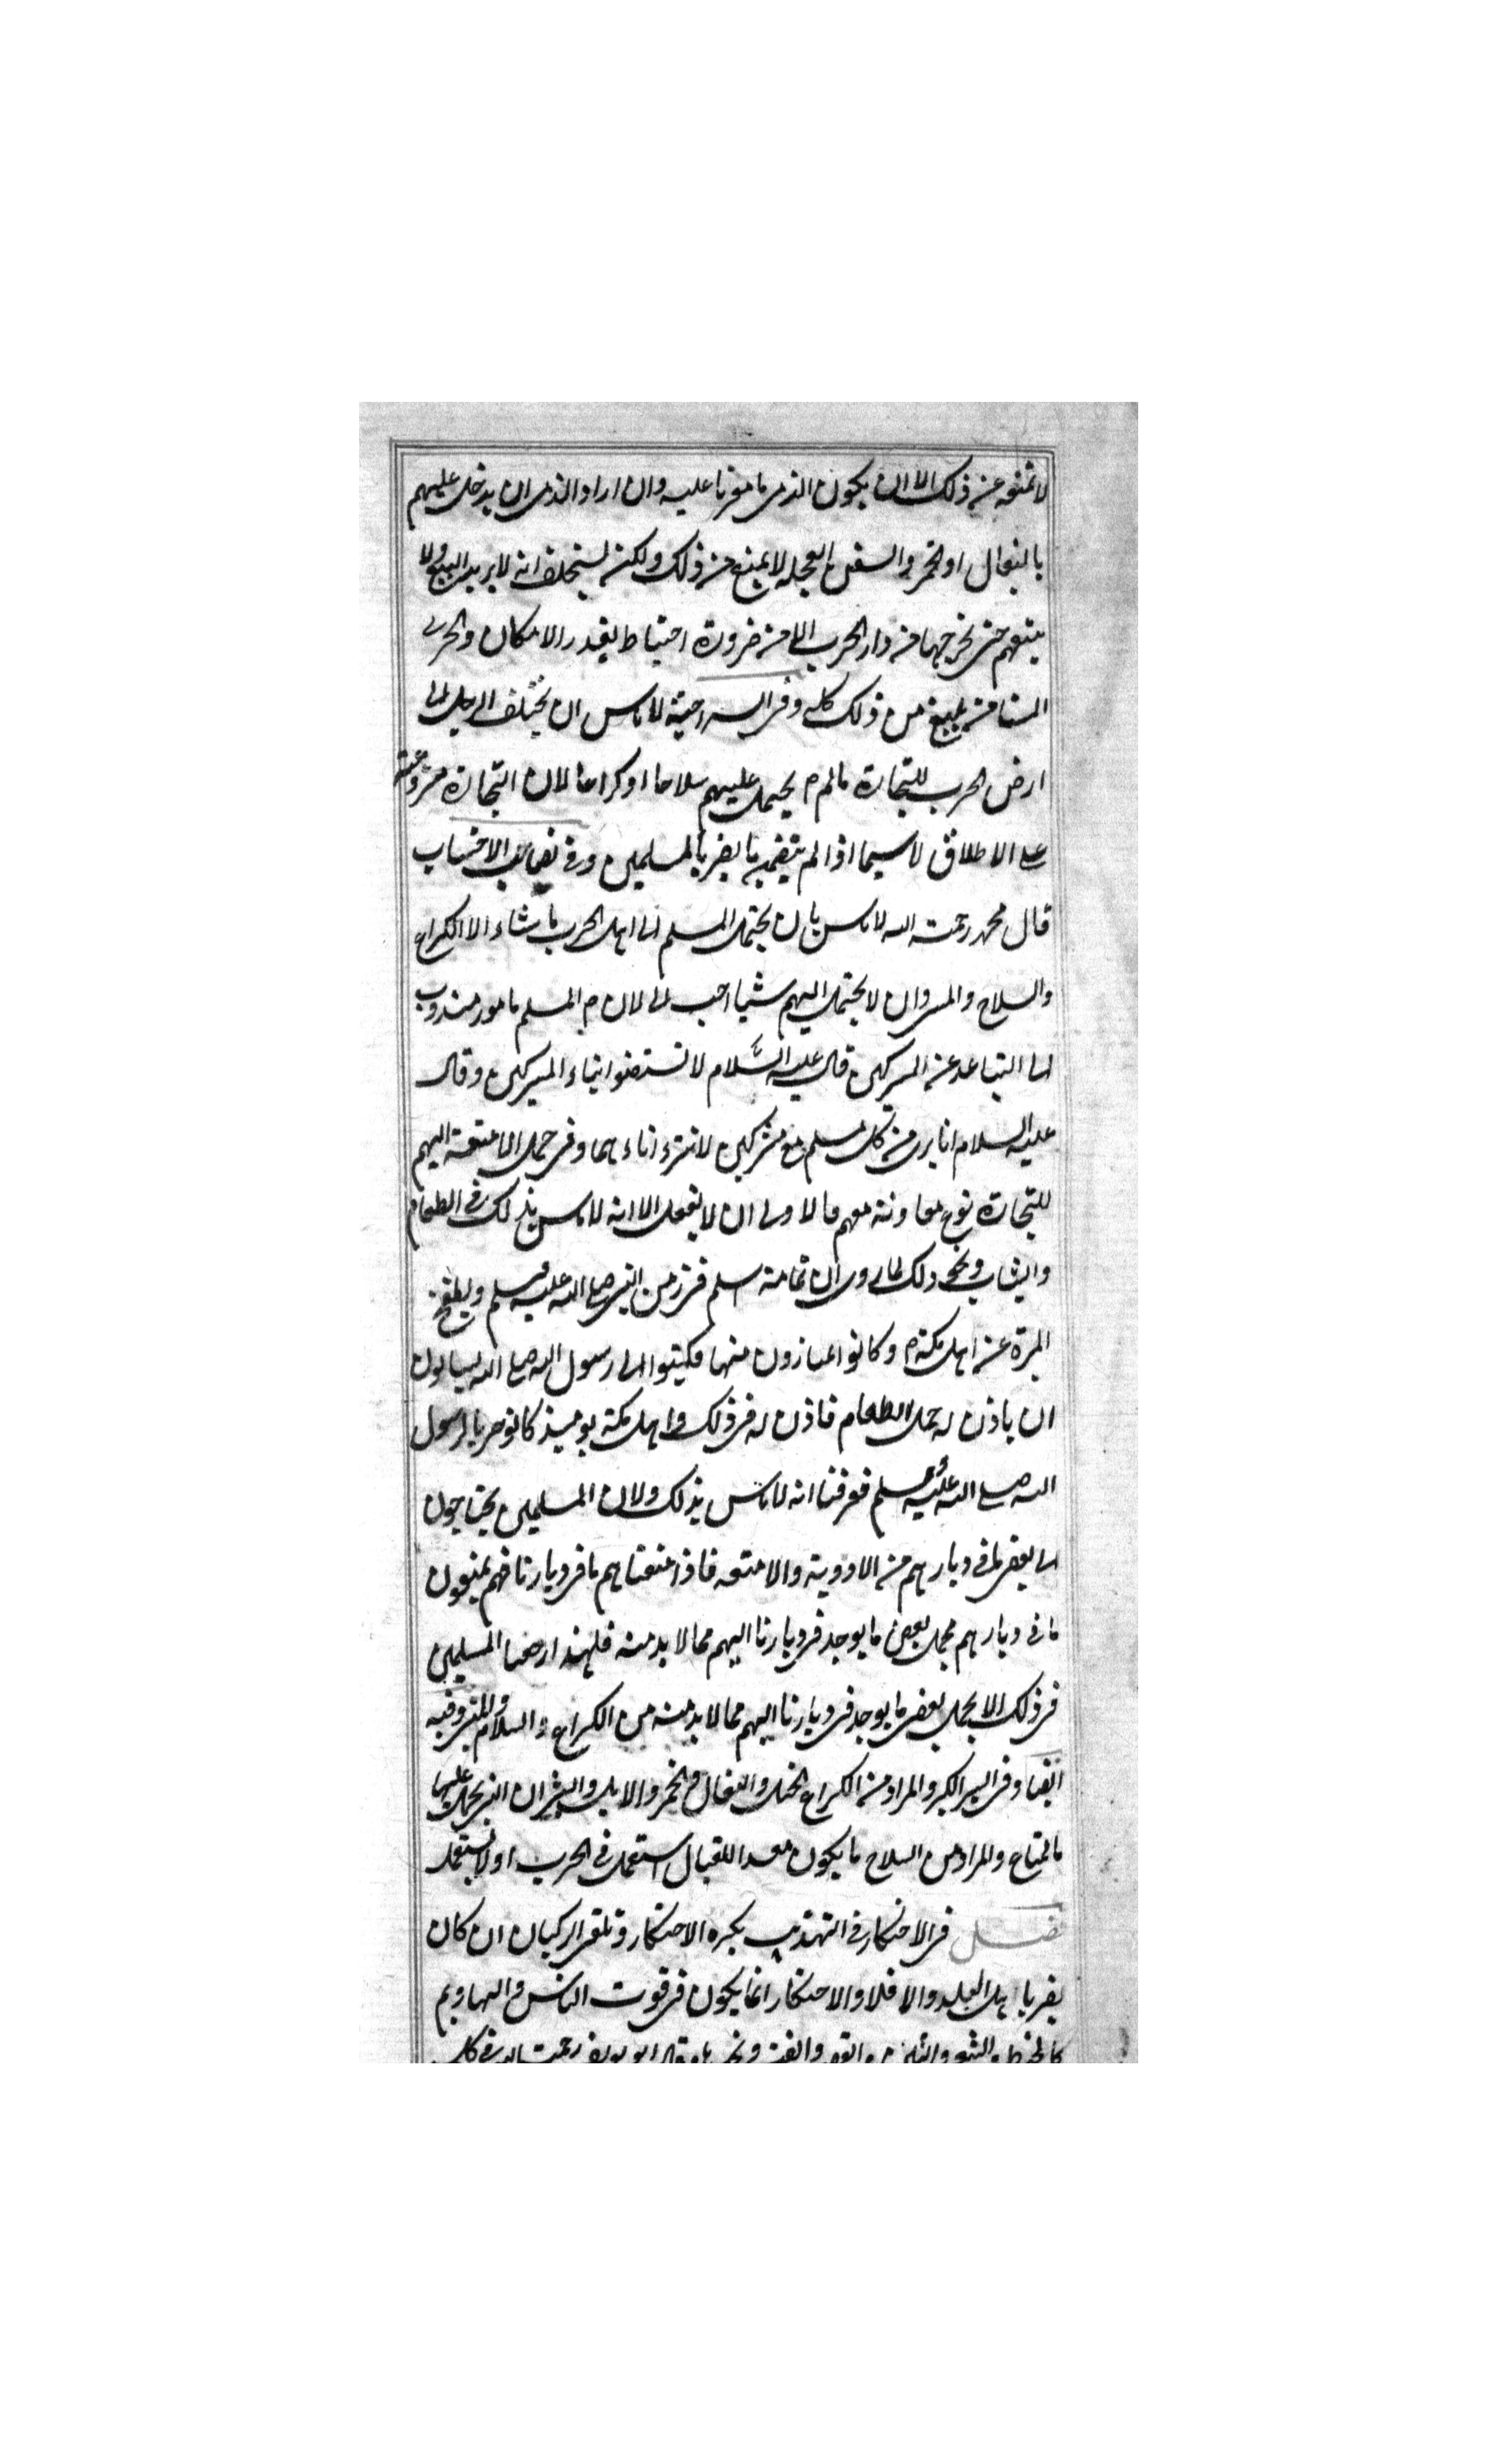 لا تمنعه عن ذلك الا ان يكون الذمى مامونا عليه وان اراد الذمى ان يدخل عليهم
بالبغال او الحمر والسفن العجله لا يمنع من ذلك ولكنه يستحلف انه لا يريد البيع ولا
يبيعهم حتى يخرجها من دار الحرب الا من ضرورة احتياط بقدر الامكان والحربى
المستامن يمنع من ذلك كله وفى السراجية لا باس ان يختلف الرجل الى
ارض الحرب للتجارة ما لم يحمل عليهم سلاحا او كراعا لان التجارة مشروعة
على الاطلاق لا سيما اذا لم يتضمن ما يضر بالمسلمين وفى نصاب الاحتساب
قال محمد رحمة الله لا باس بان يحتمل المسلم الى اهل الحرب ما شاء الا الكراع
والسلاح والسى وان لا يحتمل اليهم شيا احب الى لان المسلم مامور مندوب
الى التباعد عن المشركين قال عليه السلام لا تستضوا بناء المشركين وقال
عليه السلام انا برى من كل مسلم مع مشركين لا تتراء اناءهما وفى حمل الامتعة اليهم
للتجارة نوع معاونة معهم فالاولى ان لا يفعل الا انه لا باس بذلك فى الطعام
والثياب ونحو ذلك لما روى ان ثمامة اسلم فى زمن النبى صلى الله عليه وسلم ويقطع
المرة عن اهل مكة وكانوا امتازون منها فكتبوا الى رسول الله صلى الله يسالون
ان ياذن له حمل الطعام فاذن له فى ذلك واهل مكة يوميذ كانوا حربا لرسول
الله صلى الله عليه وسلم فعرفنا انه لا باس بذلك ولان المسلمين يحتاجون
الى بعض ما فى ديارهم من الادوية والامتعه فاذا منعناهم ما فى ديارنا فهم يمنعون
ما فى ديارهم فحمل بعض ما يوجد فى ديارنا اليهم مما لا بد منه فلهذا رخصنا المسلمين
فى ذلك الا بحمل بعض ما يوجد فى ديارنا اليهم مما لا بد منه من الكراع والسلاح وفيه
ايضا وفى السير الكبير والمراد من الكراع الخيل والبغال والحمر والابل والثيران التى يحمل عليها
المتاع والمراد من السلاح ما يكون معدا للقتال استعمل فى الحرب او لا يستعمل
فصل فى الاحتكار فى التهذيب يكره الاحتكار وتلقى الركبان ان كان
يضر باهل البلد والا فلا والاحتكار انما يكون فى قوت الناس والبهايم